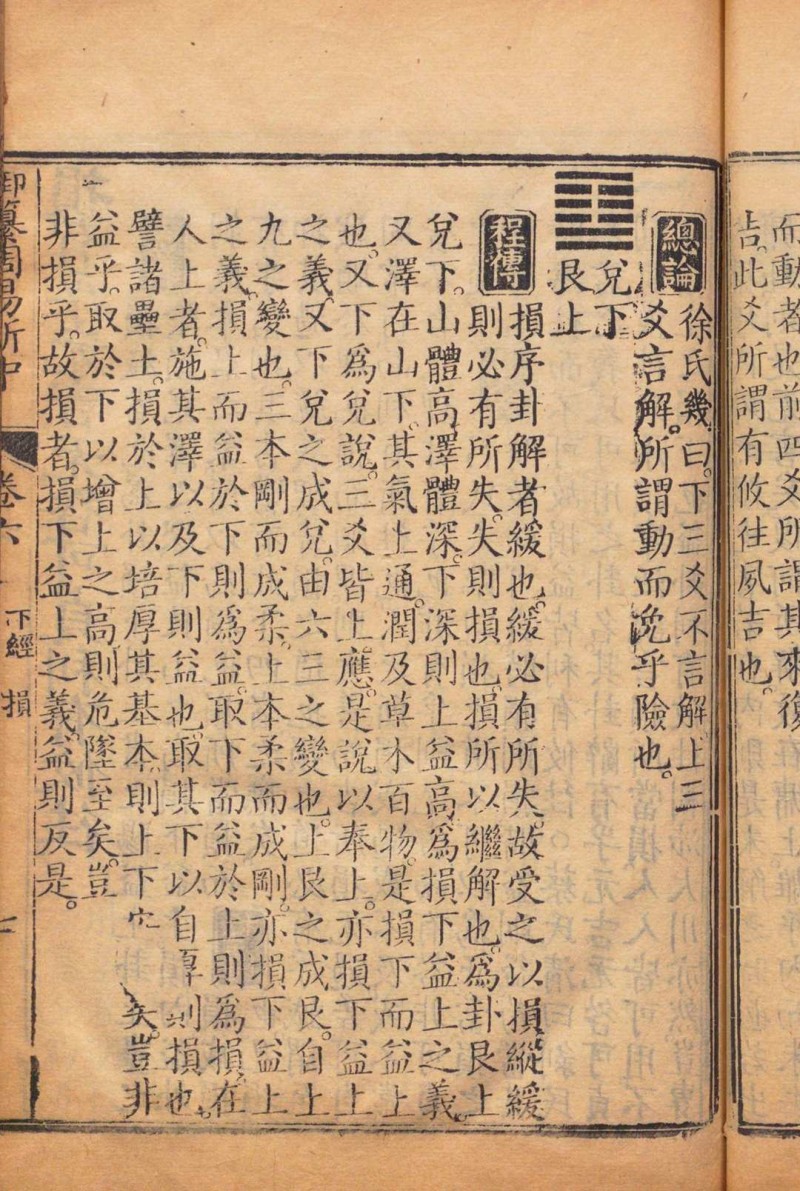 而動者也前四爻所謂其來復
吉。此爻所謂有攸往夙吉也。
總論
徐氏幾曰。下三爻不言解上三
爻言解。所謂動而免乎險也。
兌下
艮上
程傳
損序卦解者緩也。緩必有所失。故受之以損縱緩
則必有所失。失則損也。損所以繼解也。爲卦艮上
兌下。山體高澤體深。下深則上益高。爲損下益上之義。
又澤在山下。其氣上通。潤及草木百物。是損下而益上
也。又下爲兌說。三爻皆上應。是說以奉上。亦損下益上
之義。又下兌之成兌。由六三之變也。上艮之成艮。自上
九之變也。三本剛而成柔。上本柔而成剛。亦損下益上
之義。損上而益於下則爲益。取下而益於上則爲損。在
人上者。施其澤以及下則益也。取其下以自厚則損也。
譬諸壘土。損於上以培厚其基本。則上下矣。豈非
益乎。取於下以增上之高。則危墜至矣。豈
非損乎。故損者。損下益上之義。益則反是。
御纂周易折中
卷六
下經
損